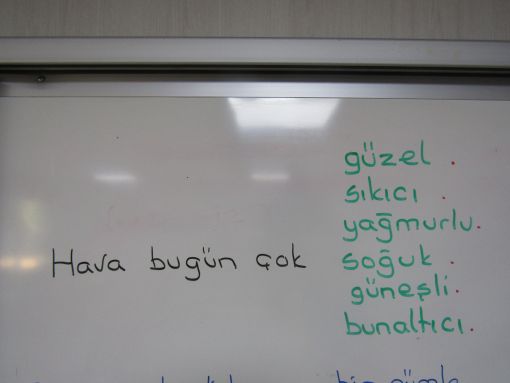 güzel .
sıkıcı .
yağmurlu.
Hava bugün çok soğuk .
güneşli.
bunaltıcı.